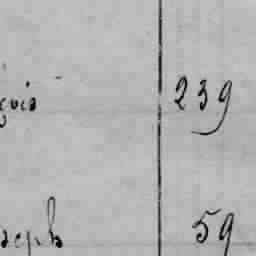 çois 239
seph 59